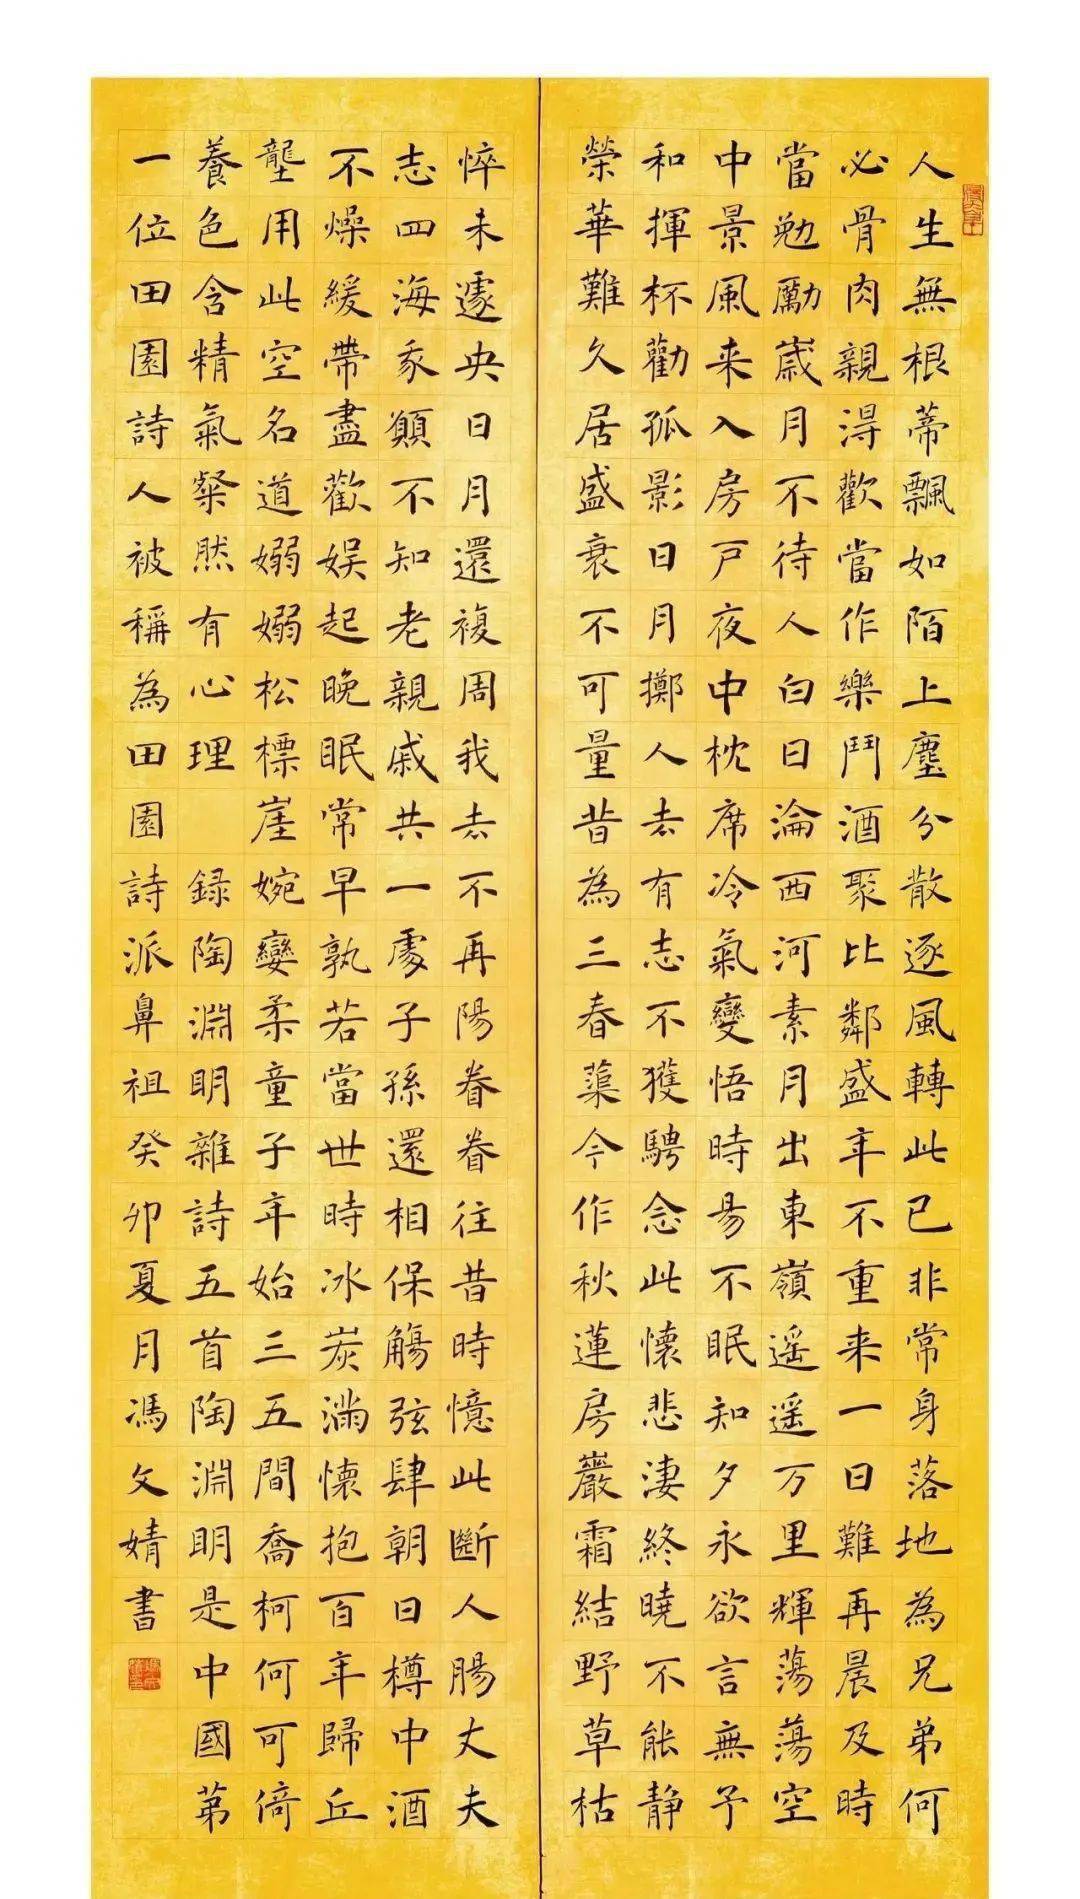 人生無根蒂飄如陌上塵分散逐風轉此已非常身落地為兄弟何
必骨肉親淂歡當作樂鬥酒聚比鄰盛年不重来一日難再晨及時
當勉勵歲月不待人白日淪西河素月出東嶺遥遥万里輝蕩蕩空
中景風来入房戶夜中枕席冷氣變悟時易不眠知夕永欲言無予
和揮杯勸孤影日月擲人去有志不獲騁念此懷悲淒終曉不能静
榮華難久居盛衰不可量昔為三春蕖今作秋蓮房嚴霜結野草枯
悴未遽央日月還複周我去不再陽眷眷往昔時憶此斷人腸丈夫
志四海我願不知老親戚共一處子孫還相保觴弦肆朝日樽中酒
不燥緩帶盡歡娱起晚眠常早孰若當世時冰炭滿懷抱百年歸丘
壟用此空名道嫋嫋松標崖婉孌柔童子年始三五間喬柯何可倚
養色含精氣粲然有心理 録陶淵明雜詩五首陶淵明是中國第
一位田園詩人被稱為田園詩派鼻祖癸卯夏月馮文婧書